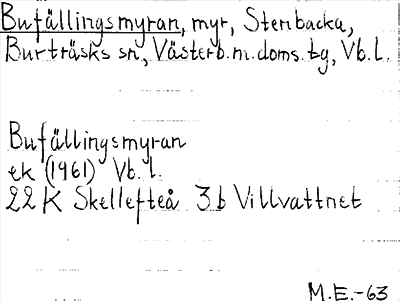 Bufällingsmyran, myr, Stenbacka,
Burträsks sn, Västerb.m.doms.tg, Vb.l.
Bufällingsmyran
ek (1961) Vb.l.
22 K Skellefteå 3b Villvattnet
M.E.-63